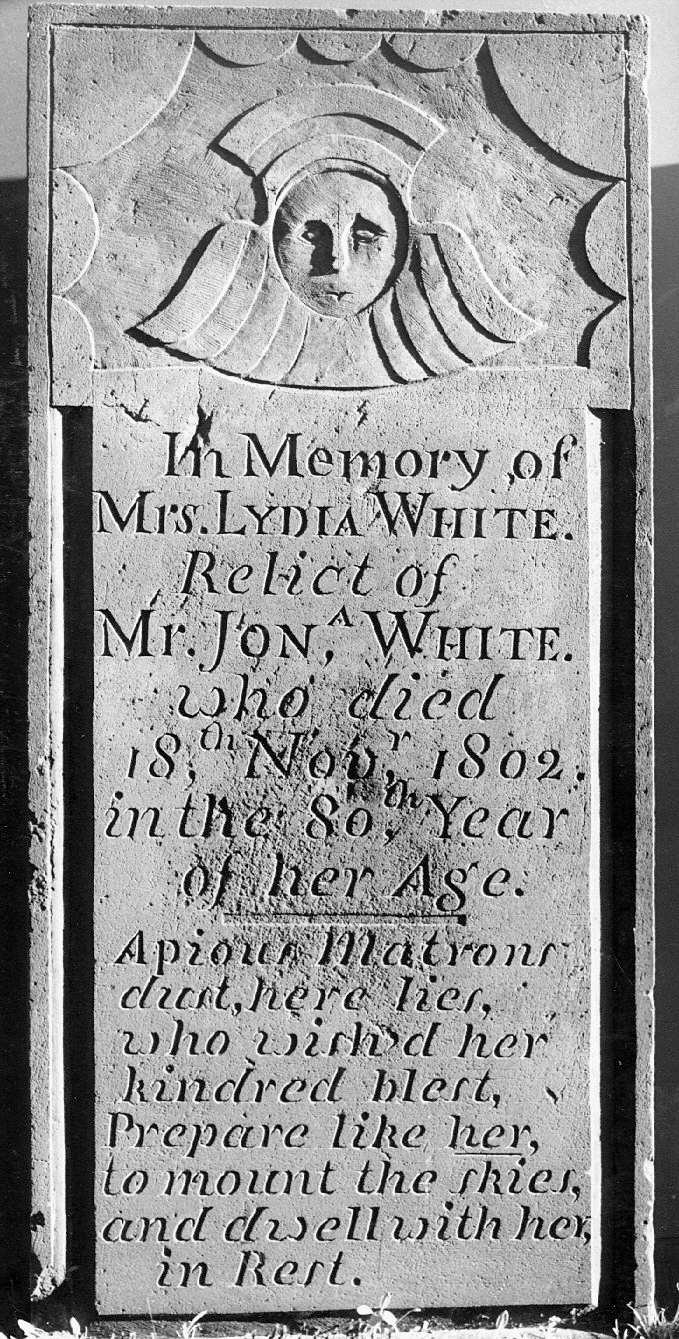 In Memory of
Mrs. LYDIA WHITE.
Relict of
Mr. JON,ᴬ WHITE.
who died
18,ᵗʰ Nov,ʳ 1802.
in the 80,ᵗʰ Year
of her Age.
A pious Matrons
dust, here lies,
who wish'd her
kindred blest,
Prepare like her,
to mount the skies,
and dwell with her,
in Rest.